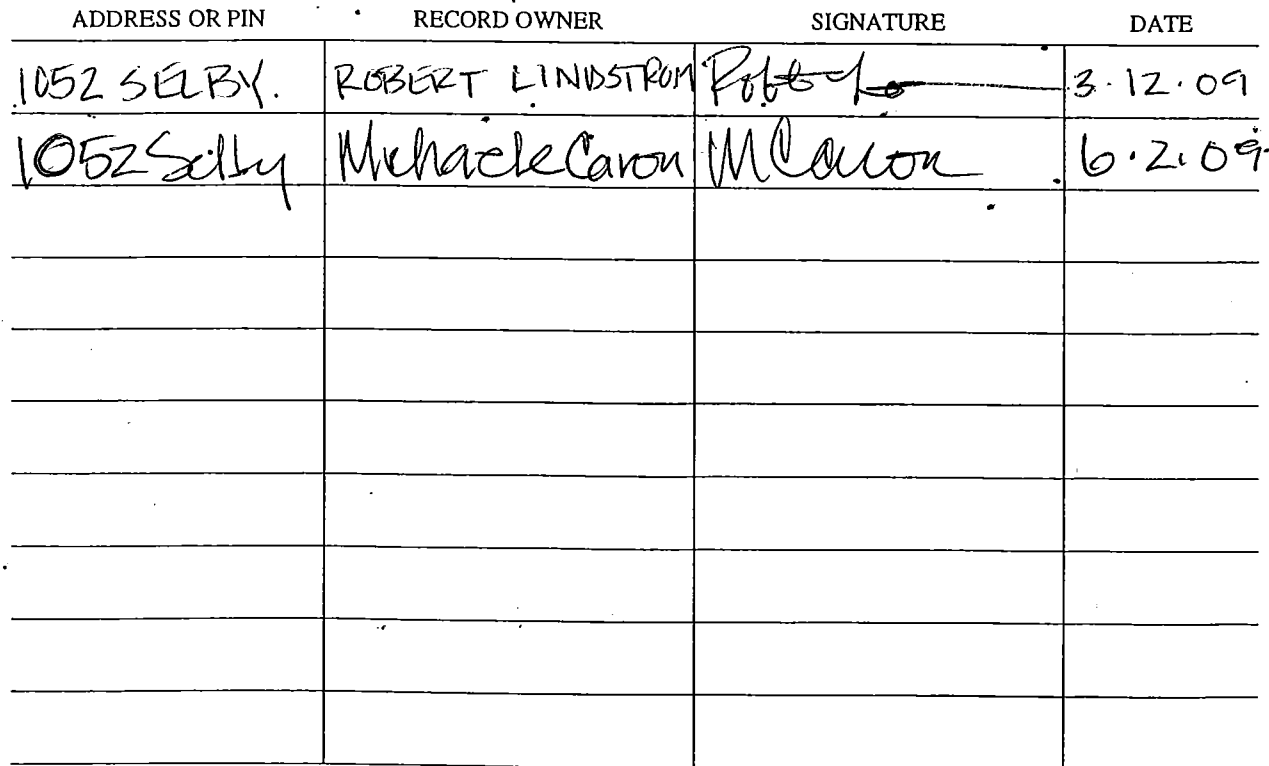 ADDRESS OR PIN RECORD OWNER SIGNATURE DATE
1052 SELBY. ROBERT LINDSTROM 3.12.09
1052 Selby Michaele Caron M Caron 6.2.09